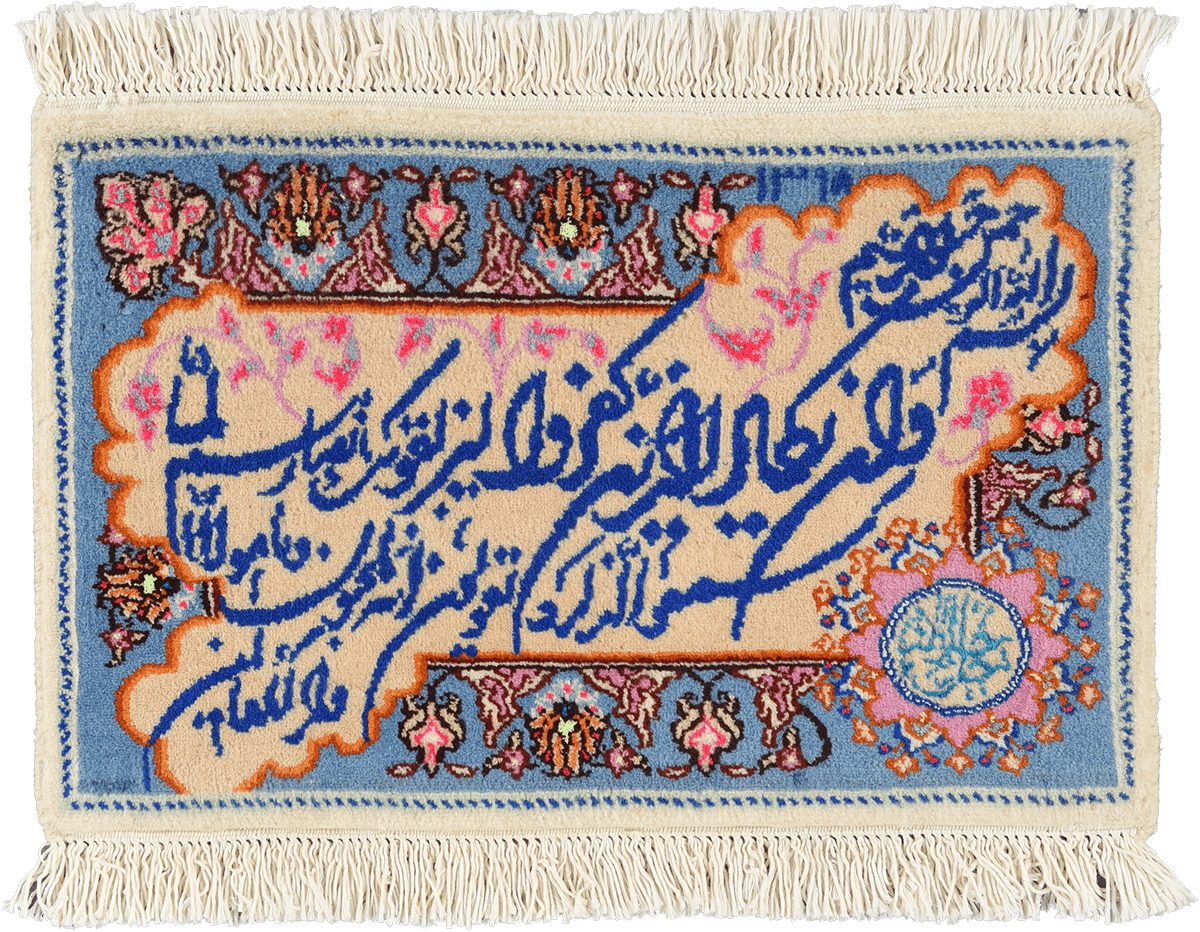 بسم الله الرحمن الرحيم
وان يكاد الذين كفروا ليزلقونك بابصارهم لما
سمعوا الذكر و يقولون انه لمجنون و ما هو الا
ذكر للعالمين